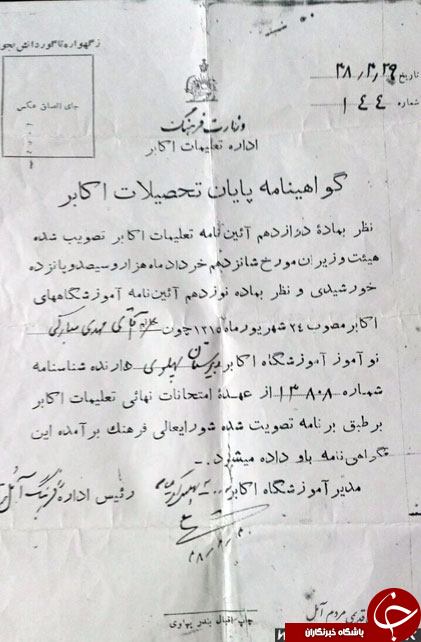 ز گهواره تا گور دانش بجو
جای الصاق عکس
تاریخ ۳۸/۳/۲۹
شماره ۱۴۴
وزارت فرهنگ
اداره تعلیمات اکابر
گواهینامه پایان تحصیلات اکابر
نظر بمادهٔ دوازدهم آئین‌نامه تعلیمات اکابر تصویب شده
هیئت وزیران مورخ شانزدهم خرداد ماه هزار و سیصد و پانزده
خورشیدی و نظر بماده نوزدهم آئین‌نامه آموزشگاههای
اکابر مصوب ۲۴ شهریور ماه ۱۳۱۵ چون آقای مهدی مبارکی
نوآموز آموزشگاه اکابر دبیرستان پهلوی دارنده شناسنامه
شماره ۱۳۸۰۸ از عهدهٔ امتحانات نهائی تعلیمات اکابر
برطبق برنامه تصویت شده شورایعالی فرهنك برآمده این
گواهی‌نامه باو داده میشود.-
مدیر آموزشگاه اکابر رئیس اداره فرهنگ آمل
چاپ اقبال بندر پهلوی
قدری مردم آمل
باشگاه خبرنگاران